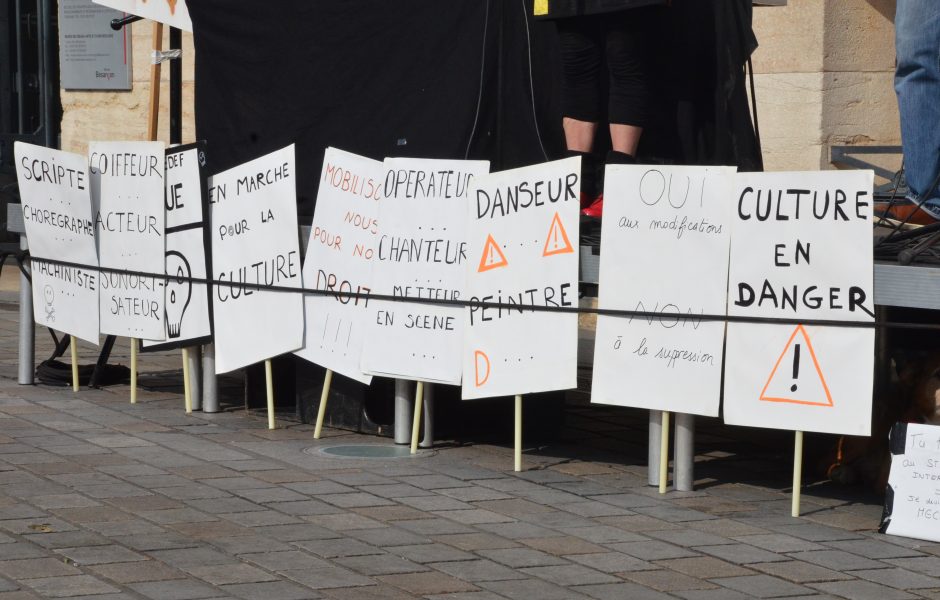 Besançon
SCRIPTE
....
CHOREGRAPHE
....
MACHINISTE
COIFFEUR
....
ACTEUR
....
SONORI-
SATEUR
DEF
UE
EN MARCHE
POUR LA
CULTURE
MOBILISO
NOUS
POUR NO
DROIT
!!!
OPERATEUR
....
CHANTEUR
....
METTEUR
EN SCENE
....
DANSEUR
....
PEINTRE
D ....
OUI
aux modifications
NON
à la supression
CULTURE
EN
DANGER
!
TU
AU ST
INTER
HEC